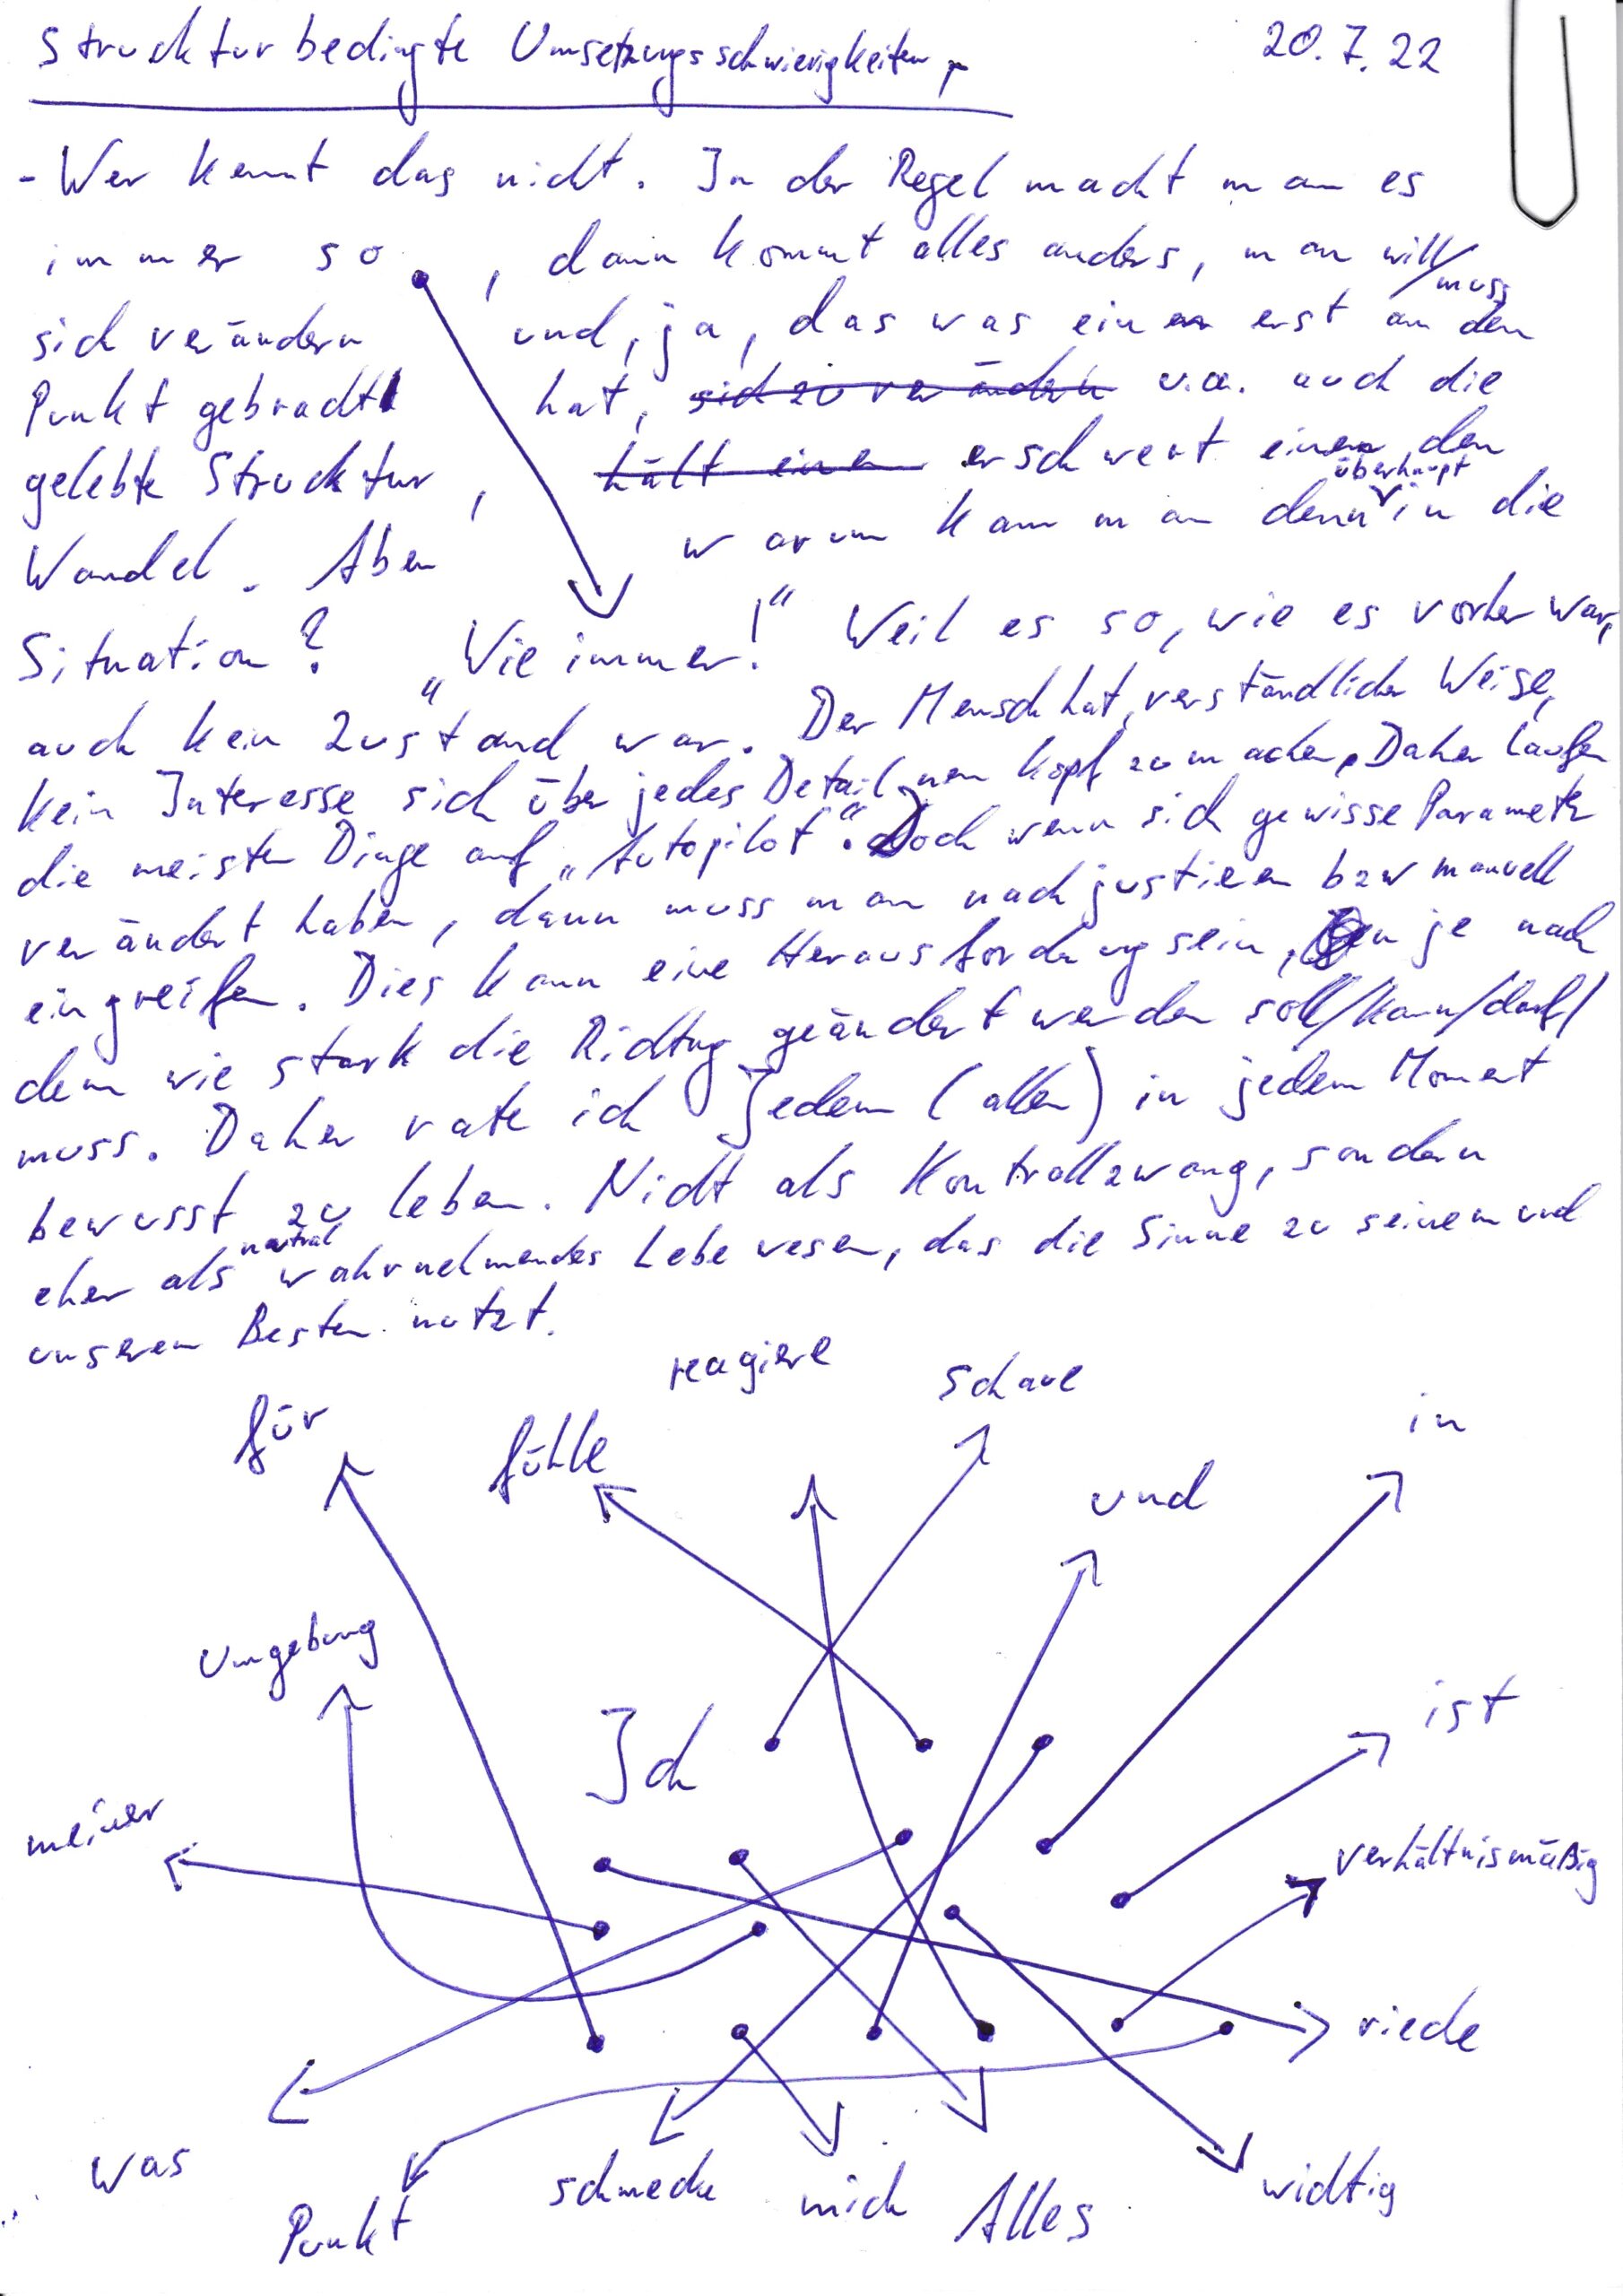 Strukturbedingte Umsetzungsschwierigkeiten,
20.7.22
- Wer kennt das nicht. In der Regel macht man es
immer so , dann kommt alles anders, man will/muss
sich verändern und, ja, das was einen erst an den
Punkt gebracht hat, sich zu verändern u.a. auch die
gelebte Struktur, hält einen erschwert einen den
Wandel. Aber warum kann man denn überhaupt in die
Situation? „Wie immer!“ Weil es so, wie es vorher war,
auch kein Zustand war. Der Mensch hat, verständlicher Weise,
kein Interesse sich über jedes Detail nen Kopf zu machen. Daher laufen
die meisten Dinge auf „Autopilot“. Doch wenn sich gewisse Parameter
verändert haben, dann muss man nachjustieren bzw manuell
eingreifen. Dies kann eine Herausforderung sein, je nach
dem wie stark die Richtug geändert werden soll/kann/darf/
muss. Daher rate ich Jedem (allen) in jedem Moment
bewusst zu leben. Nicht als Kontrollzwang, sondern
eher als neutral wahrnehmendes Lebewesen, das die Sinne zu seinem und
unseren Besten nutzt.
reagiere
schaue
für
fühle
in
und
Umgebung
Ich
ist
meiner
verhältnismäßig
rieche
was
Punkt
schmecke
mich
Alles
wichtig